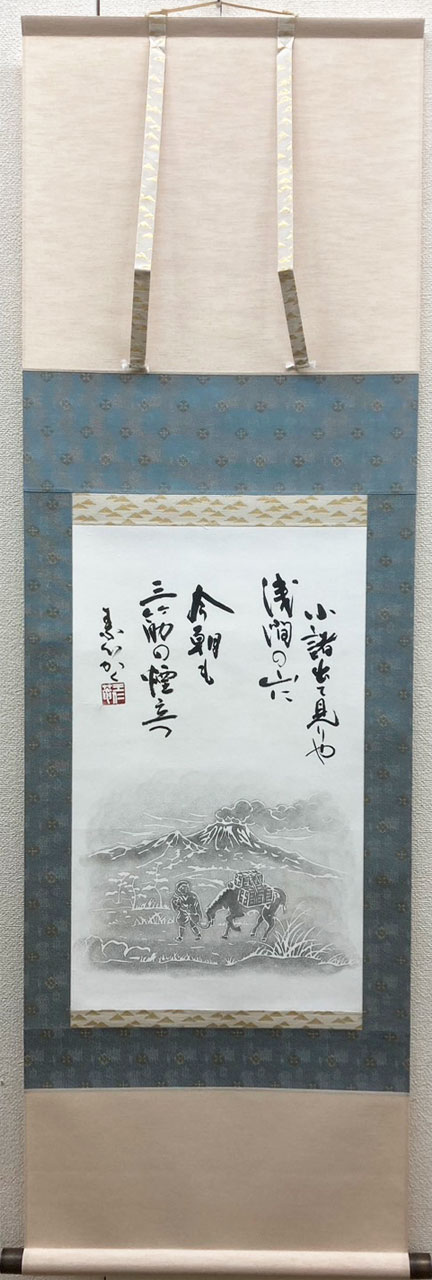 小諸出て見りや
浅間の山に
今朝も
三筋の煙立つ
かく